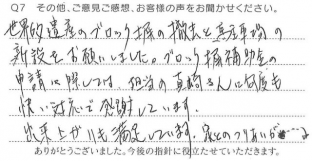 Q7 その他、ご意見ご感想、お客様の声をお聞かせください。
世界的遺産のブロック塀の撤去と駐車場の
新設をお願いしました。ブロック塀補助金の
申請に際しては、担当の真崎さんに何度も
快い対応で感謝しています。
出来上がりも満足しています。家とのつりあいが
ありがとうございました。今後の指針に役立たせていただきます。